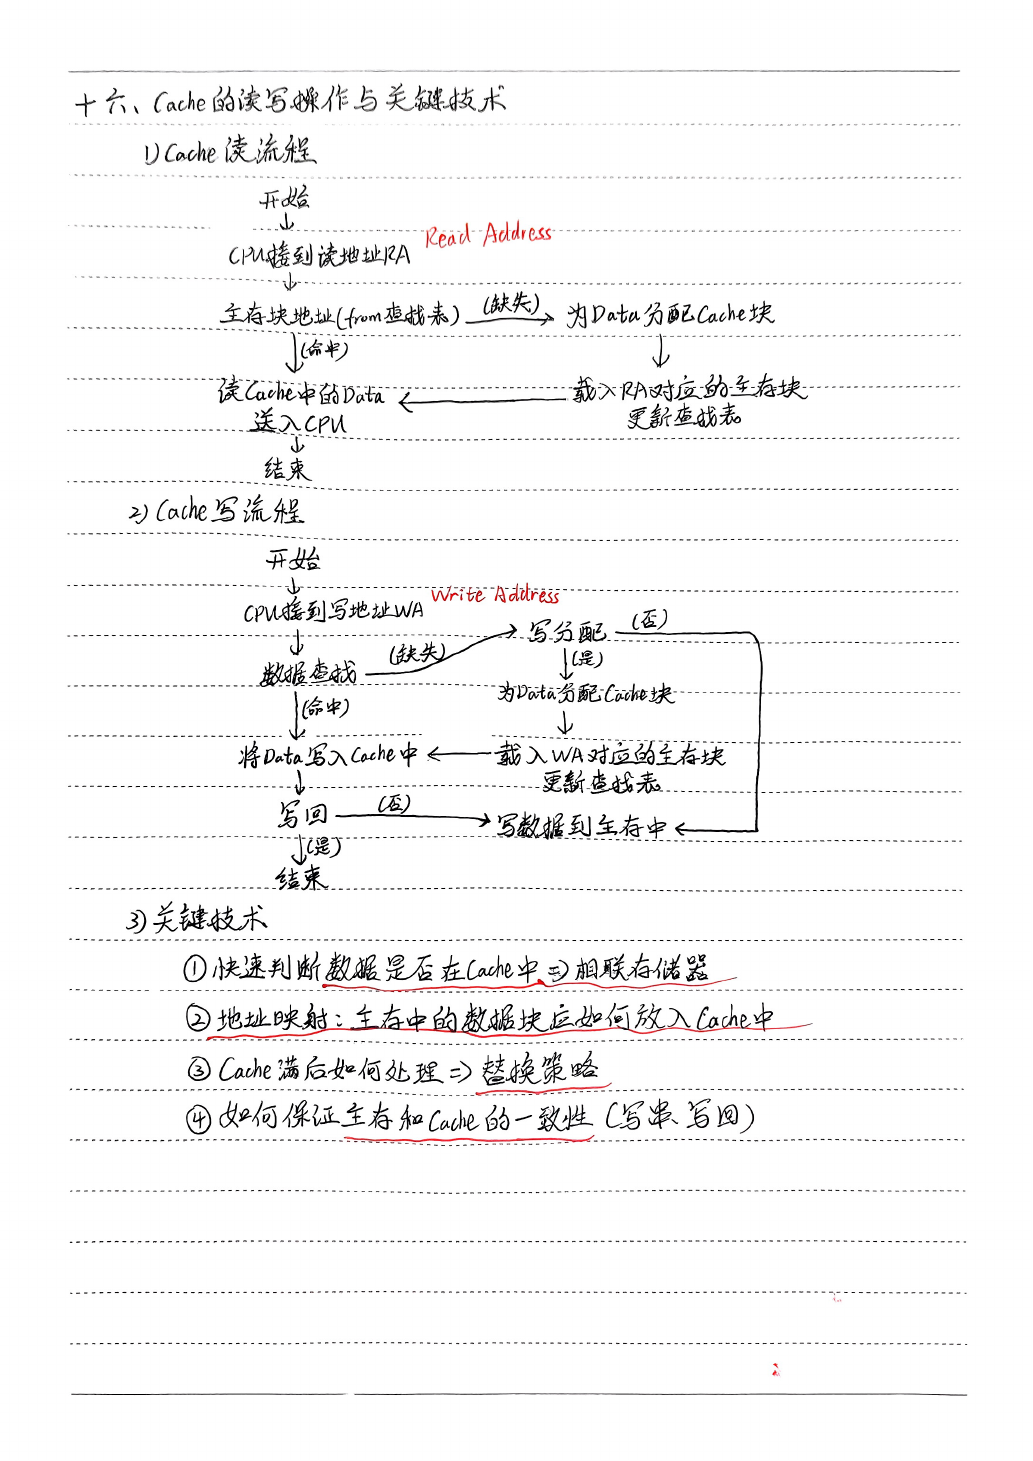 十六、Cache的读写操作与关键技术
1) Cache 读流程
开始
↓
CPU接到读地址RA Read Address
↓
主存块地址(from查找表) (缺失) → 为Data分配Cache块
↓(命中) ↓
读Cache中的Data ← 载入RA对应的主存块
送入CPU 更新查找表
↓
结束
2) Cache写流程
开始
↓
CPU接到写地址WA Write Address
↓ 写分配 (否)
数据查找 (缺失) → ↓(是)
↓(命中) 为Data分配Cache块
↓
将Data写入Cache中 ← 载入WA对应的主存块
↓ 更新查找表
写回 (否) → 写数据到主存中 ←
↓(是)
结束
3) 关键技术
① 快速判断数据是否在Cache中 ⇒ 相联存储器
② 地址映射：主存中的数据块应如何放入Cache中
③ Cache满后如何处理 ⇒ 替换策略
④ 如何保证主存和Cache的一致性（写串、写回）